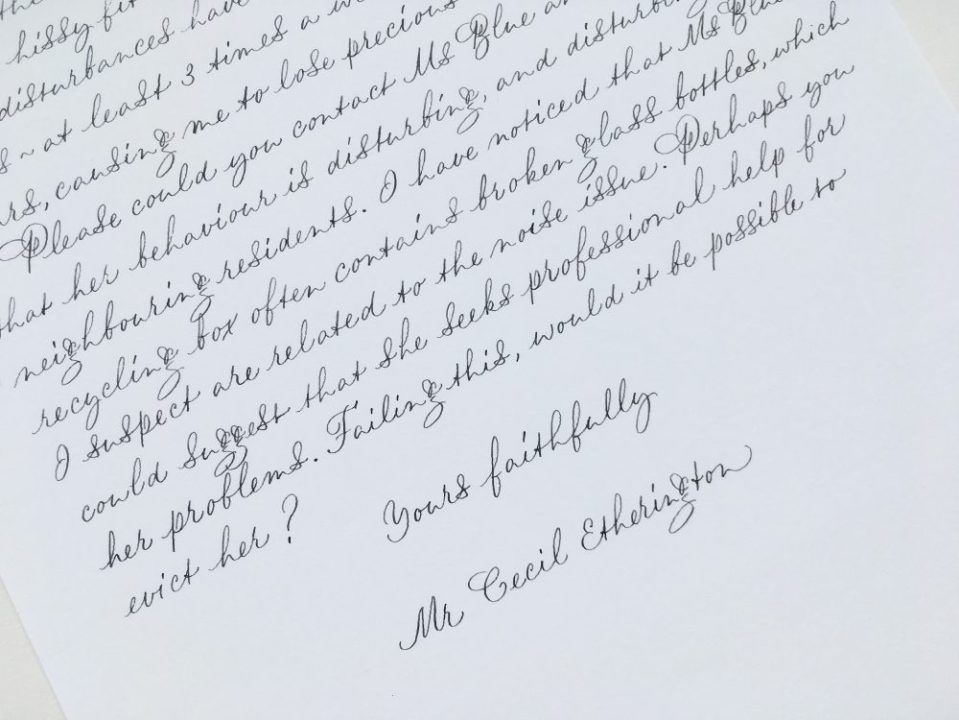 the
hissy fit
disturbances have
s ~ at least 3 times a w
rs, causing me to lose precious
Please could you contact Ms Blue an
that her behaviour is disturbing, and disturbing
neighbouring residents. I have noticed that Ms Blue
recycling box often contains broken glass bottles, which
I suspect are related to the noise issue. Perhaps you
could suggest that she seeks professional help for
her problems. Failing this, would it be possible to
evict her?
Yours faithfully
Mr Cecil Etherington